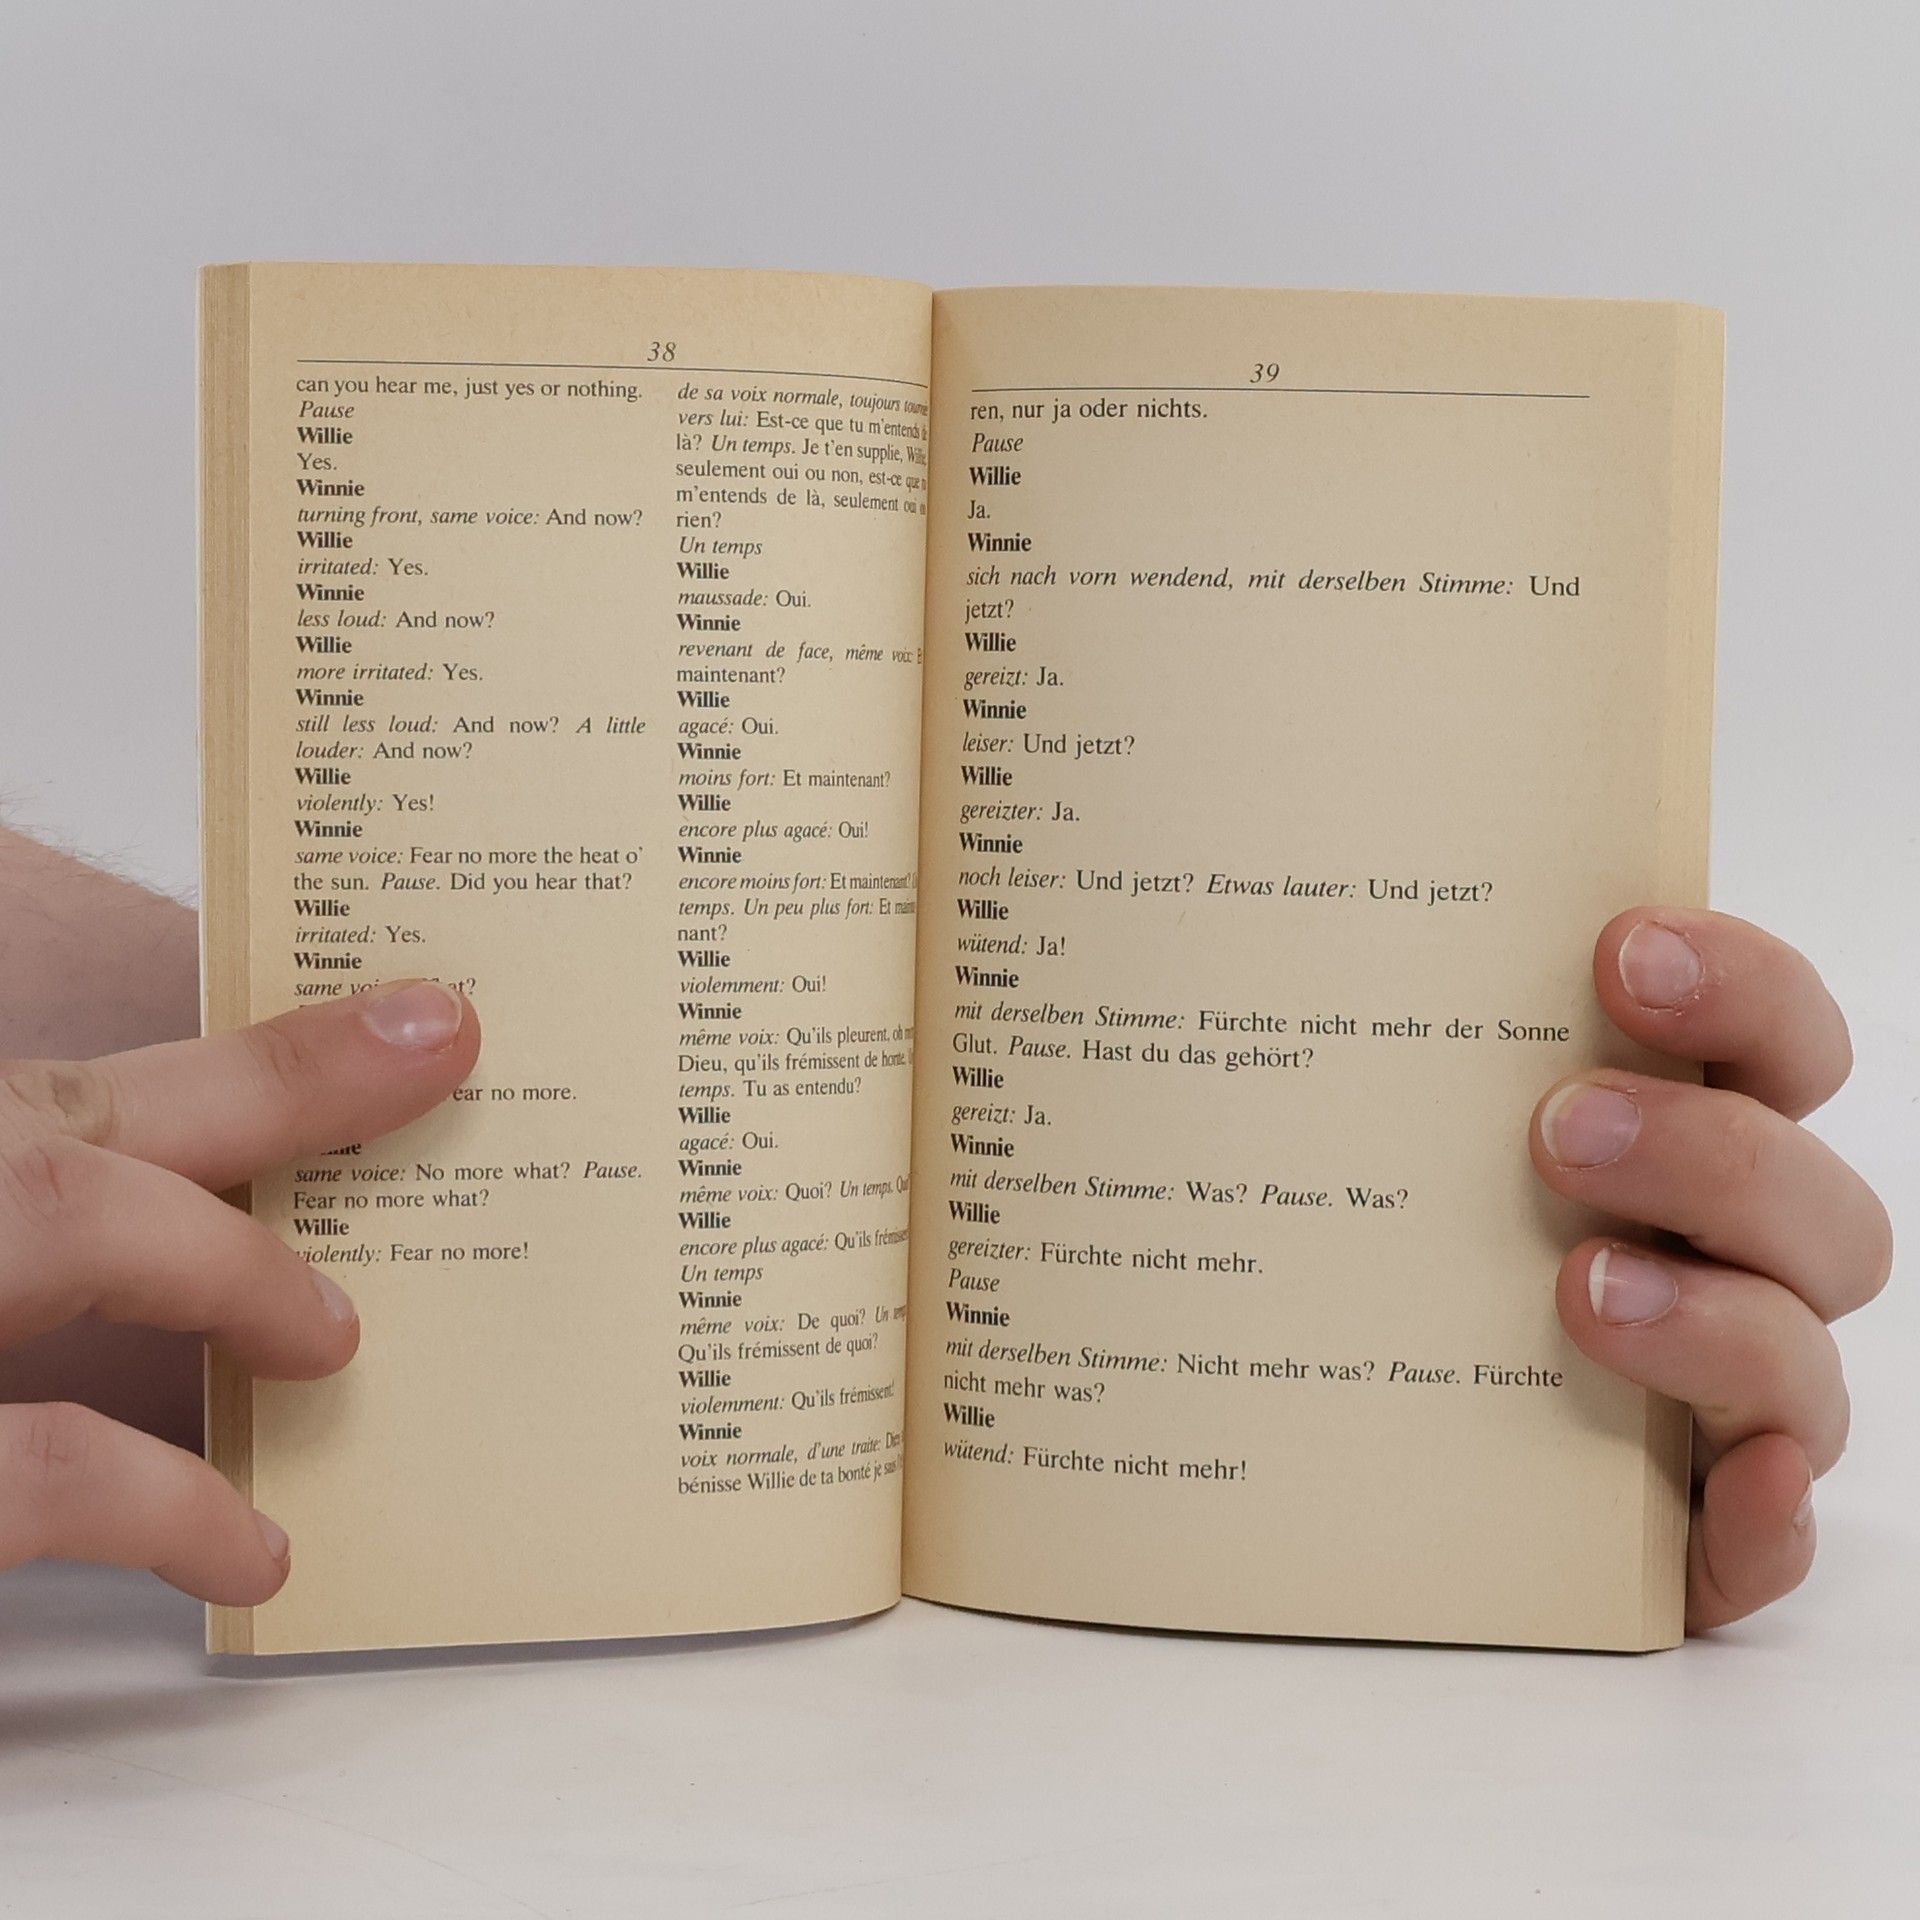 38
can you hear me, just yes or nothing.
Pause
Willie
Yes.
Winnie
turning front, same voice: And now?
Willie
irritated: Yes.
Winnie
less loud: And now?
Willie
more irritated: Yes.
Winnie
still less loud: And now? A little
louder: And now?
Willie
violently: Yes!
Winnie
same voice: Fear no more the heat o'
the sun. Pause. Did you hear that?
Willie
irritated: Yes.
Winnie
same
no more.
same voice: No more what? Pause.
Fear no more what?
Willie
violently: Fear no more!
de sa voix normale, toujours
vers lui: Est-ce que tu m'entends
là? Un temps. Je t'en supplie,
seulement oui ou non, est-ce que
m'entends de là, seulement oui
rien?
Un temps
Willie
maussade: Oui.
Winnie
revenant de face, même voix:
maintenant?
Willie
agacé: Oui.
Winnie
moins fort: Et maintenant?
Willie
encore plus agacé: Oui!
Winnie
encore moins fort: Et maintenant?
temps. Un peu plus fort: Et
nant?
Willie
violemment: Oui!
Winnie
même voix: Qu'ils pleurent, oh
Dieu, qu'ils frémissent de honte.
temps. Tu as entendu?
Willie
agacé: Oui.
Winnie
même voix: Quoi? Un temps.
Willie
encore plus agacé: Qu'ils
Un temps
Winnie
même voix: De quoi? Un
Qu'ils frémissent de quoi?
Willie
violemment: Qu'ils frémissent!
Winnie
voix normale, d'une traite:
bénisse Willie de ta bonté je
39
ren, nur ja oder nichts.
Pause
Willie
Ja.
Winnie
sich nach vorn wendend, mit derselben Stimme: Und
jetzt?
Willie
gereizt: Ja.
Winnie
leiser: Und jetzt?
Willie
gereizter: Ja.
Winnie
noch leiser: Und jetzt? Etwas lauter: Und jetzt?
Willie
wütend: Ja!
Winnie
mit derselben Stimme: Fürchte nicht mehr der Sonne
Glut. Pause. Hast du das gehört?
Willie
gereizt: Ja.
Winnie
mit derselben Stimme: Was? Pause. Was?
Willie
gereizter: Fürchte nicht mehr.
Pause
Winnie
mit derselben Stimme: Nicht mehr was? Pause. Fürchte
nicht mehr was?
Willie
wütend: Fürchte nicht mehr!